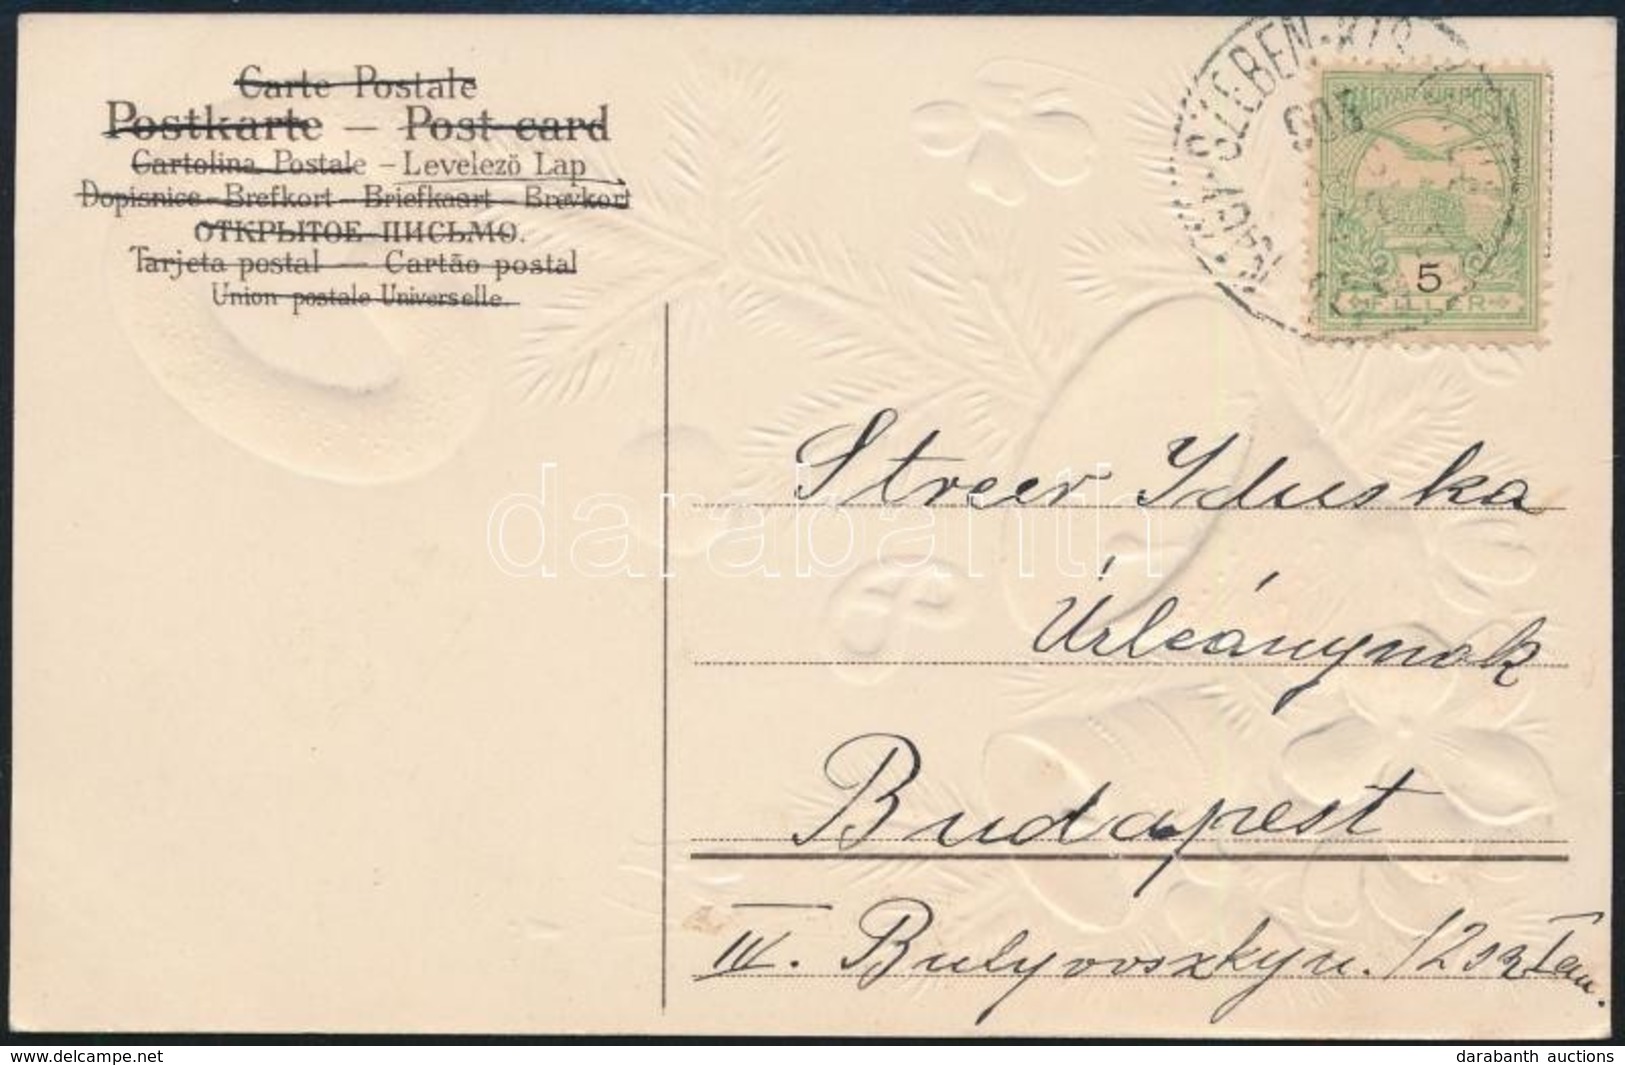 Carte Postale
Postkarte — Post-card
Cartolina Postale – Levelező Lap
Dopisnice – Brefkort – Briefkaart – Brevkort
ОТКРЫТОЕ ПИСЬМО.
Tarjeta postal — Cartão postal
Union postale Universelle.
SZEBEN-KIS
MAGYAR KIR POSTA
5
FILLÉR
Streer Iduska
Úrleánynak
Budapest
Bulyovszky u.
darabanth
darabanth auctions
https://www.delcampe.net